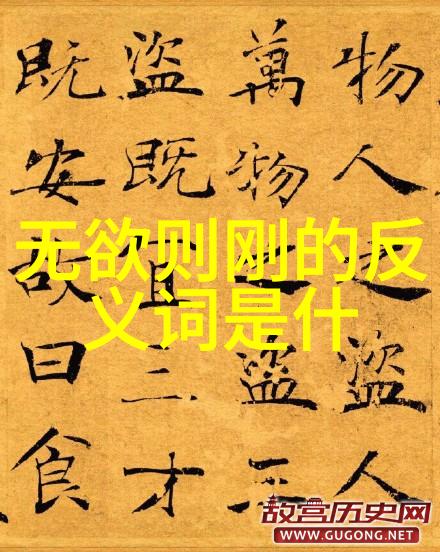 物人之盜人
萬物之盜三
盜既宜三才
既安故曰食
无欲则刚的反
义词是什
故宫历史网
WWW.GUGONG.NET